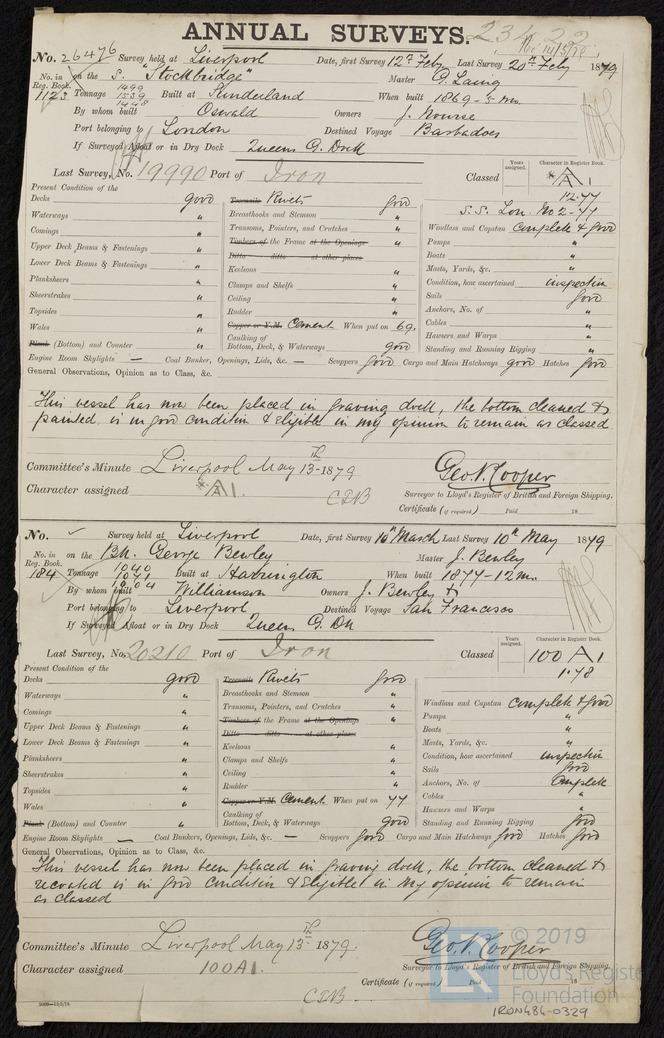 ANNUAL SURVEYS. 23422
No. 26476 Survey held at Liverpool Date, first Survey 12th Feby Last Survey 20th Feby 1879
No. in on the S. "Stockbridge" Master G. Laing
Reg. Book. 1499
1123 Tonnage 1539 Built at Sunderland When built 1869 - 5 mo.
1448
By whom built Oswald Owners J. Nourse
Port belonging to London Destined Voyage Barbadoes
If Surveyed Afloat or in Dry Dock Queens G. Dock
Last Survey, No. 19990 Port of Iron Classed
Years assigned. Character in Register Book.
*A1
12.77
S.S. Lon. No 2-77
Present Condition of the
Decks good
Waterways "
Comings "
Upper Deck Beams & Fastenings "
Lower Deck Beams & Fastenings "
Planksheers "
Sheerstrakes "
Topsides "
Wales "
Plank (Bottom) and Counter "
Treenails Rivets good
Breasthooks and Stemson "
Transoms, Pointers, and Crutches "
Timbers of the Frame at the Openings "
Ditto ditto at other places
Keelsons "
Clamps and Shelfs "
Ceiling "
Rudder "
Copper or Y.M. Cement When put on 69.
Caulking of
Bottom, Deck, & Waterways good
Windlass and Capstan complete & good
Pumps "
Boats "
Masts, Yards, &c. "
Condition, how ascertained inspection
Sails good
Anchors, No. of "
Cables "
Hawsers and Warps "
Standing and Running Rigging "
Engine Room Skylights — Coal Bunker, Openings, Lids, &c. — Scuppers good Cargo and Main Hatchways good Hatches good
General Observations, Opinion as to Class, &c.
This vessel has now been placed in graving dock, the bottom cleaned &
painted is in good condition & eligible in my opinion to remain as classed
Committee's Minute Liverpool May 13th 1879
Character assigned *A1.
CIB
Geo. N. Cooper
Surveyor to Lloyd's Register of British and Foreign Shipping.
Certificate (if required) Paid 18
No. Survey held at Liverpool Date, first Survey 14th March Last Survey 10th May 1879
No. in on the Bk. George Bewley Master J. Bewley
Reg. Book. 1040
184 Tonnage 1071 Built at Harrington When built 1877-12 mo.
1004
By whom built Williamson Owners J. Bewley
Port belonging to Liverpool Destined Voyage San Francisco
If Surveyed Afloat or in Dry Dock Queens G. Dk
Last Survey, No. 20210 Port of Iron Classed
Years assigned. Character in Register Book.
100 A1
1.78
Present Condition of the
Decks good
Waterways "
Comings "
Upper Deck Beams & Fastenings "
Lower Deck Beams & Fastenings "
Planksheers "
Sheerstrakes "
Topsides "
Wales "
Plank (Bottom) and Counter "
Treenails Rivets good
Breasthooks and Stemson "
Transoms, Pointers, and Crutches "
Timbers of the Frame at the Openings "
Ditto ditto at other places
Keelsons "
Clamps and Shelfs "
Ceiling "
Rudder "
Copper or Y.M. Cement When put on 77
Caulking of
Bottom, Deck, & Waterways good
Windlass and Capstan complete & good
Pumps "
Boats "
Masts, Yards, &c. "
Condition, how ascertained inspection
Sails good
Anchors, No. of Complete
Cables "
Hawsers and Warps "
Standing and Running Rigging good
Engine Room Skylights — Coal Bunkers, Openings, Lids, &c. — Scuppers good Cargo and Main Hatchways good Hatches good
General Observations, Opinion as to Class, &c.
This vessel has now been placed in graving dock, the bottom cleaned &
recoated is in good condition & eligible in my opinion to remain
as classed
Committee's Minute Liverpool May 13th 1879.
Character assigned 100A1.
CIB
Geo. N. Cooper
Surveyor to Lloyd's Register of British and Foreign Shipping.
Certificate (if required) Paid 18
© 2019
Lloyd's Register
Foundation
IRON486-0329